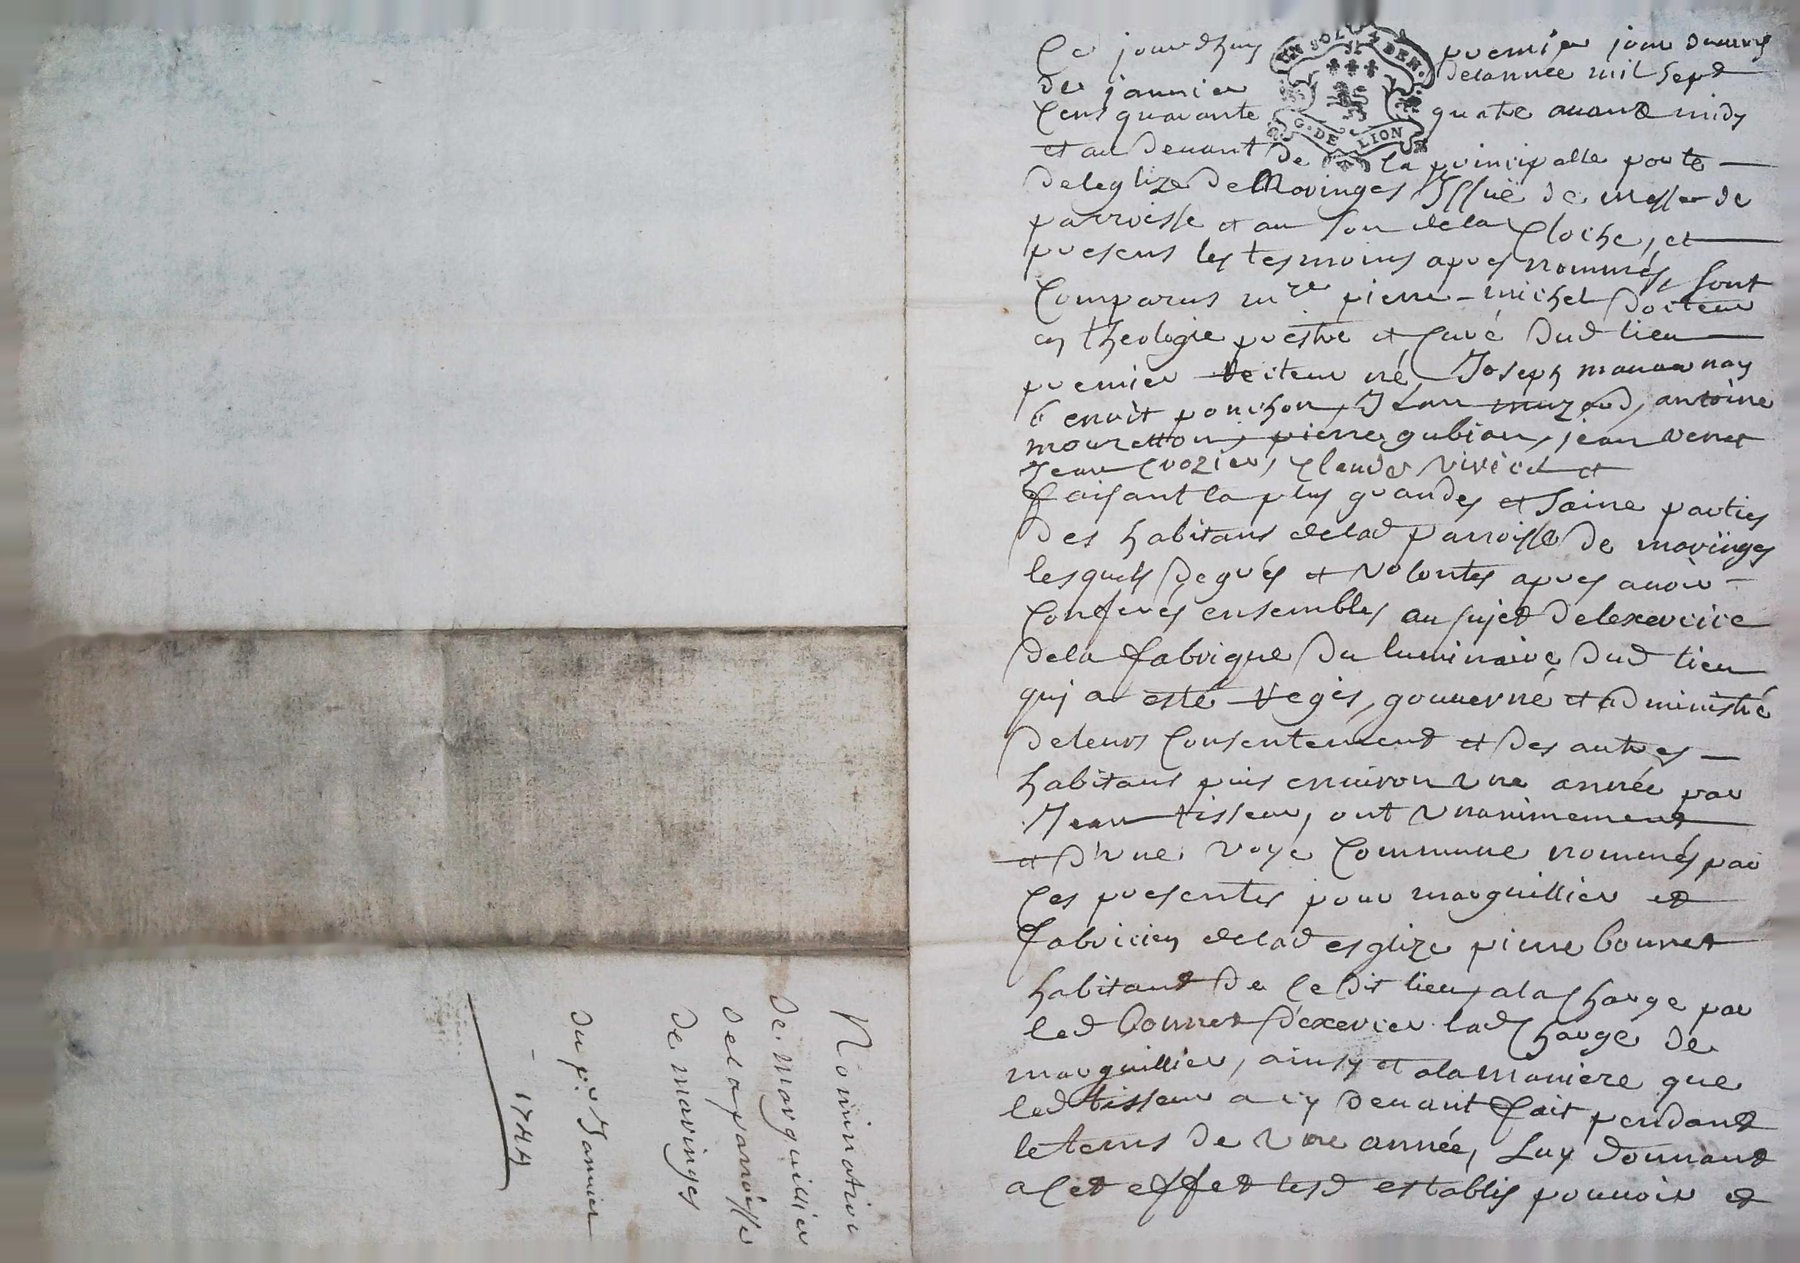 Nomination
de marguillier
de la parroisse
de maringes
du pr Janvier
1744
UN SOL 4 DEN.
G. DE LION
Ce jourdhuy premier jour du mois
de janvier de lannée mil sept
Cens quarante quatre avant midy
et au devant de la principalle porte
de leglize de Maringes Issue de messe de
parroisse et au son de la Cloche, et
presens les tesmoins apres nommés, sont
Comparus mre pierre michel Docteur
en theologie prestre et Curé dud lieu
premier recteur né, Joseph
benoit ponchon, Jean antoine
pierre gubian, jean venet
Jean Crozier, Claude et
faisant la plus grandes et saine parties
des habitans delad parroisse de maringes
lesquels de grés et volontés apres avoir
Conferés ensembles au sujet de lexercice
de la fabrique du luminaire dud lieu
qui a esté regis, gouverné et administré
de leurs Consentement et des autres
habitans puis environ une année par
Jean tisseur, ont unanimement
et d'une voye Commune nommés par
Ces presentes pour marguillier et
fabricien delad esglize pierre bonnet
habitant de Cedit lieu, a la Charge par
led bonnet d'exercer lad Charge de
marguillier, ainsy et a la maniere que
led tisseur a cy devant fait pendant
le tems de une année, Luy donnant
a Cet effet lesd establis pouvoir et